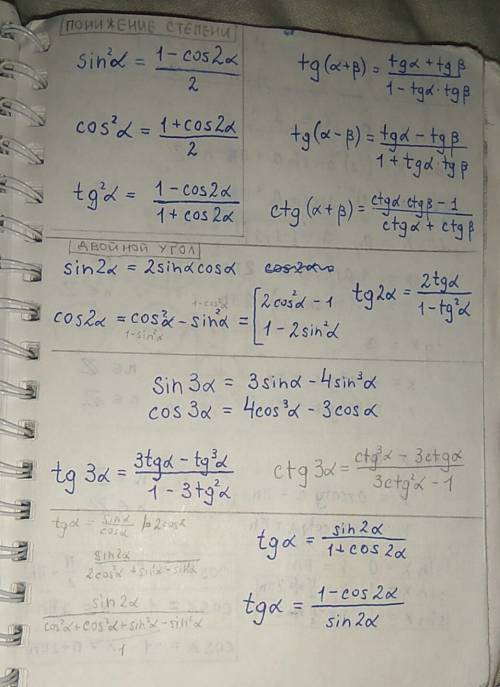 ПОНИЖЕНИЕ СТЕПЕНИ
sin²α = (1 - cos2α)/2
tg(α+β) = (tgα + tgβ)/(1 - tgα · tgβ)
cos²α = (1 + cos2α)/2
tg(α-β) = (tgα - tgβ)/(1 + tgα · tgβ)
tg²α = (1 - cos2α)/(1 + cos2α)
ctg(α+β) = (ctgα · ctgβ - 1)/(ctgα + ctgβ)
ДВОЙНОЙ УГОЛ
sin2α = 2sinα cosα cos2α
tg2α = 2tgα/(1 - tg²α)
1-cos²α
cos2α = cos²α - sin²α = [2cos²α - 1
1 - 2sin²α
1-sin²α
sin3α = 3sinα - 4sin³α
cos3α = 4cos³α - 3cosα
tg3α = (3tgα - tg³α)/(1 - 3tg²α)
ctg3α = (ctg³α - 3ctgα)/(3ctg²α - 1)
tgα = sinα/cosα |·2cosα
sin2α/(2cos²α + sin²α - sin²α)
sin2α/(cos²α + cos²α + sin²α - sin²α)
1
tgα = sin2α/(1 + cos2α)
tgα = (1 - cos2α)/sin2α